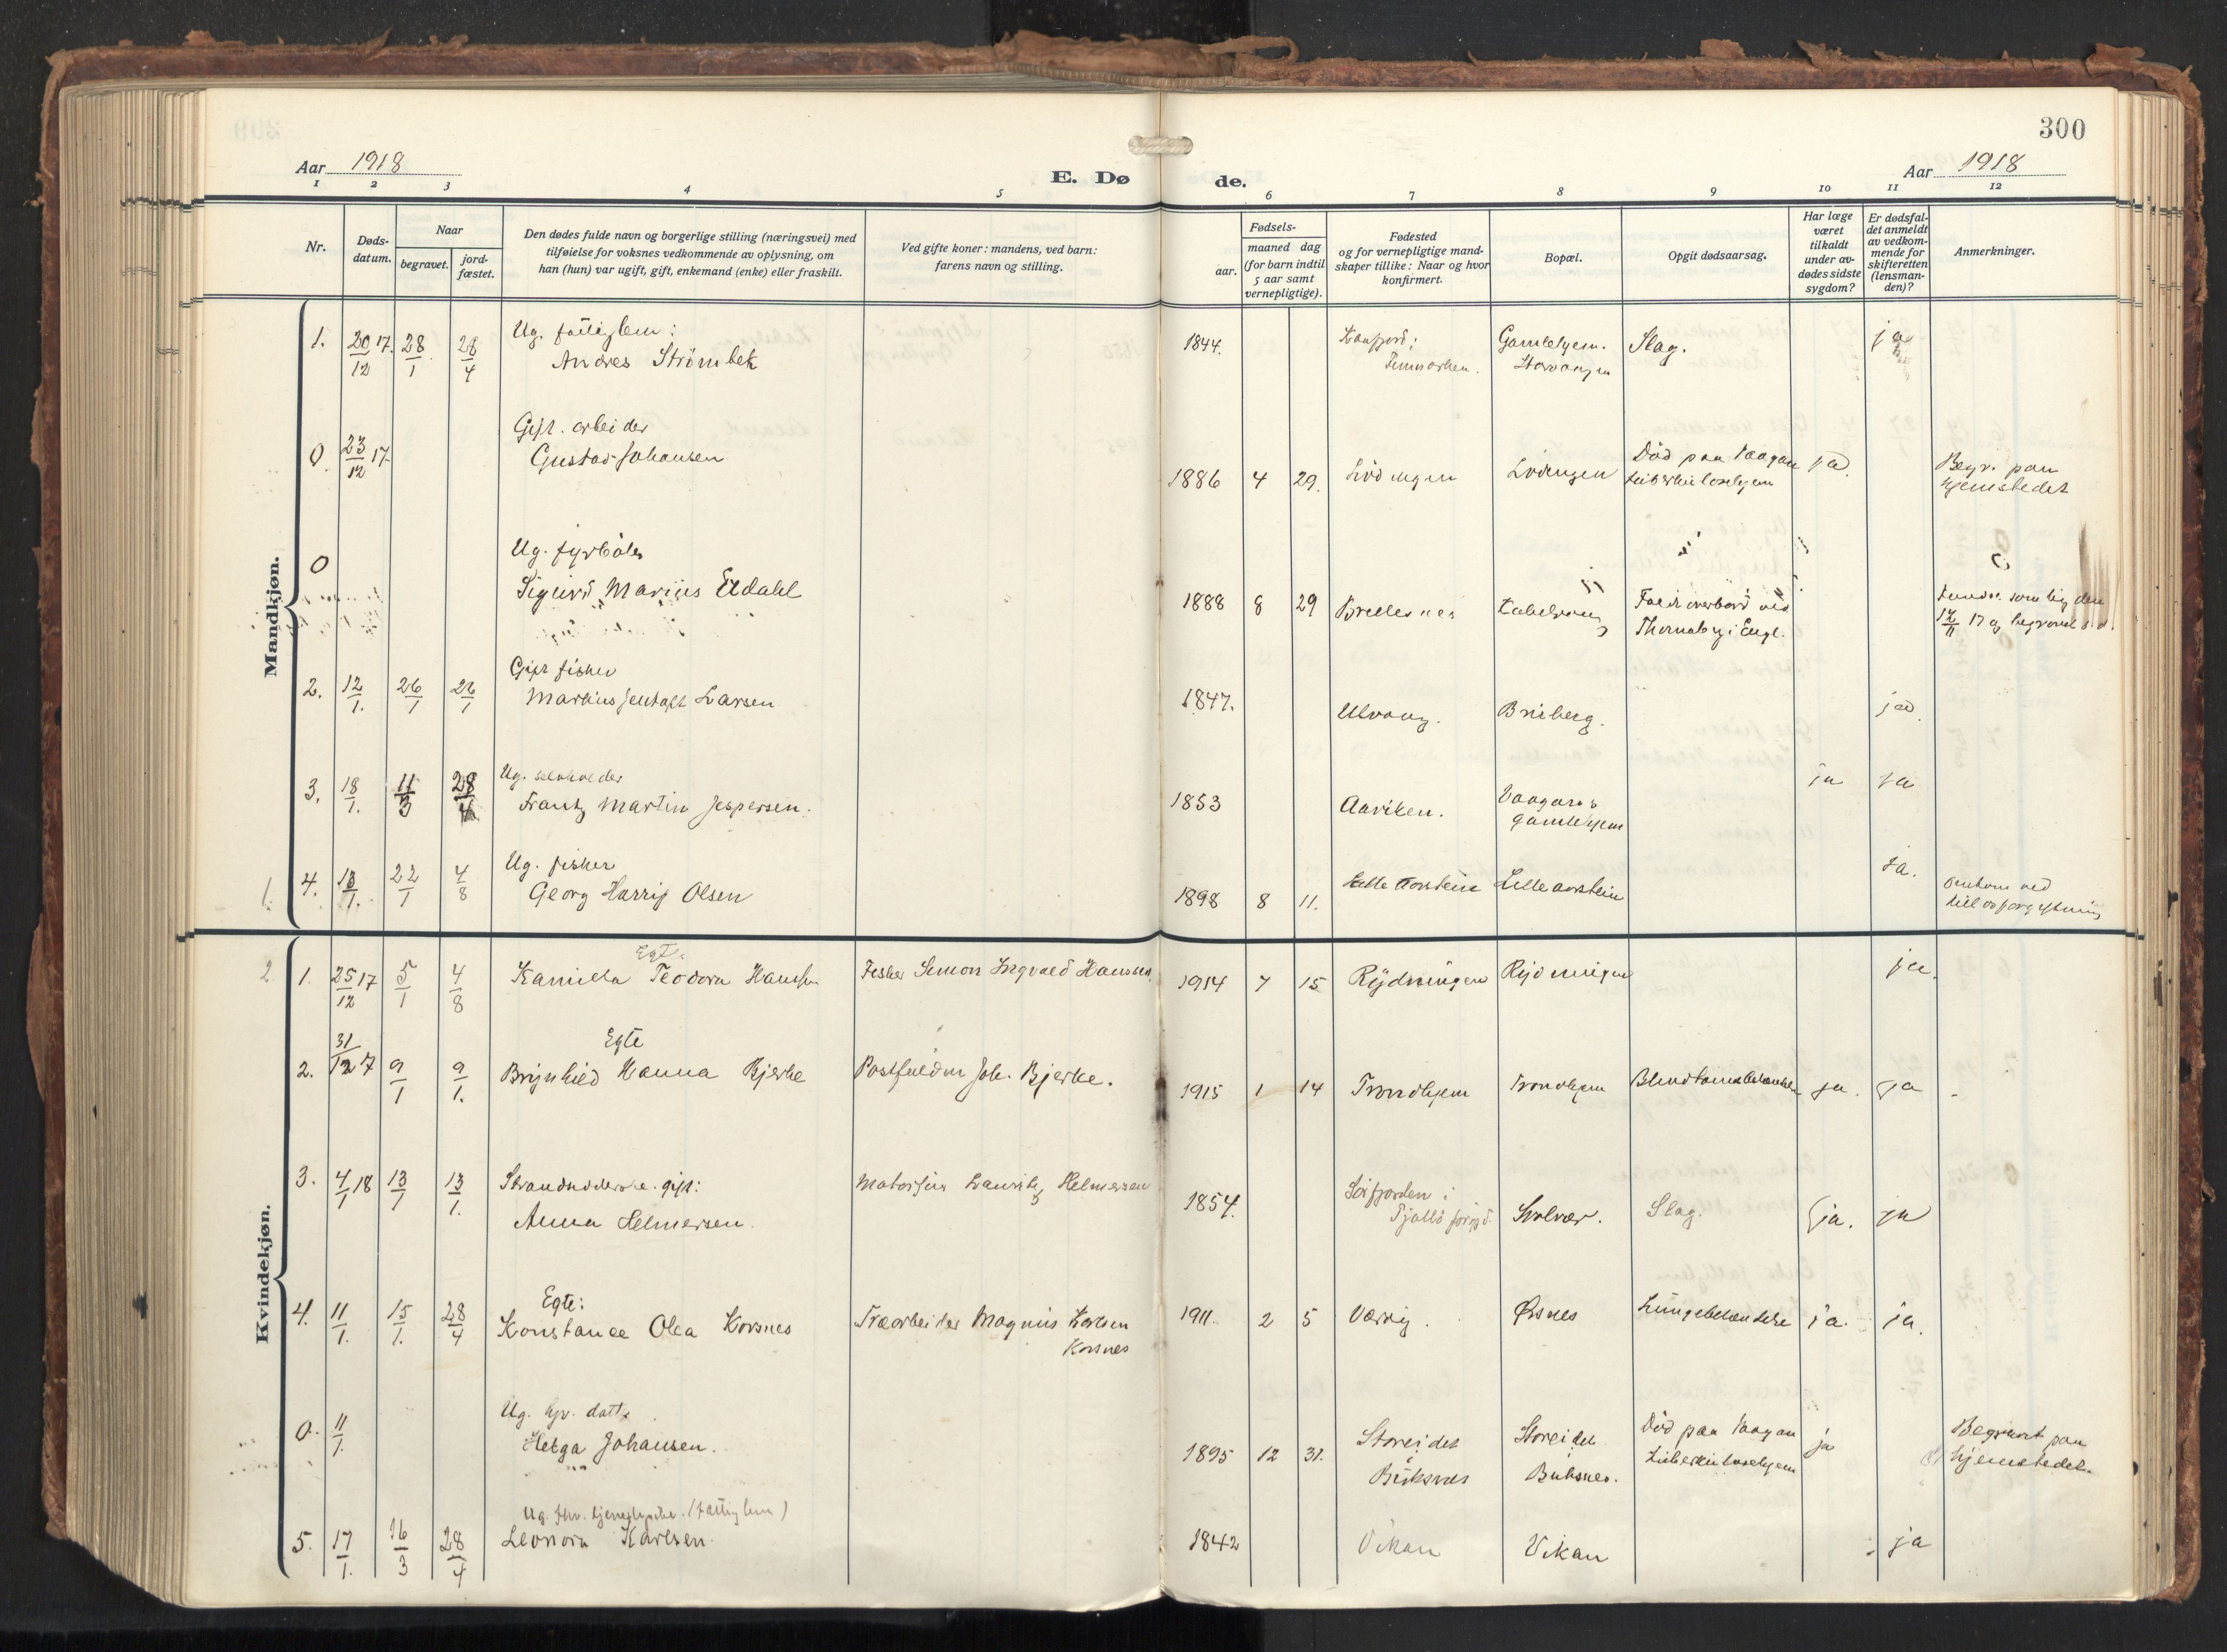 300
Aar 1918
E. Dø de.
Aar 1918
1 2 3 4 5 6 7 8 9 10 11 12
Nr.
Døds-
datum.
Naar
begravet.
jord-
fæstet.
Den dødes fulde navn og borgerlige stilling (næringsvei) med
tilføielse for voksnes vedkommende av oplysning, om
han (hun) var ugift, gift, enkemand (enke) eller fraskilt.
Ved gifte koner: mandens, ved barn:
farens navn og stilling.
Fødsels-
aar.
maaned dag
(for barn indtil
5 aar samt
vernepligtige).
Fødested
og for vernepligtige mand-
skaper tillike: Naar og hvor
konfirmert.
Bopæl.
Opgit dødsaarsag.
Har læge
været
tilkaldt
under av-
dødes sidste
sygdom?
Er dødsfal-
det anmeldt
av vedkom-
mende for
skifteretten
(lensman-
den)?
Anmerkninger.
Mandkjøn.
1. 20/12 17. 28/1 28/4 Ug. fattiglem:
Andres Strømbek
1844. Gamlehjem. Slag. ja
0. 23/12 17. Gift. arbeider
Gustav Johansen
1886 4 29. Lödingen Lödingen Död paa Vaagan ja.
Begr. paa
hjemstedet
0 Ug. fyrböter
Sigurd Marius Eldahl
1888 8 29 Brettesnes Kabelvaag Falt overbord ved
Thornaby i Engl.
som lig den
12/11 17 og begravet s.d.
2. 12/1. 26/1 26/1 Gift fisker
Martinus Jentoft Larsen
1847. Ulvaag. Brisberg. ja.
3. 18/1. 11/3 28/4 Ug.
Frantz Martin Jespersen.
1853 Aarsten. Vaagans
gamlehjem
ja ja
1. 4. 13/1. 22/1 4/8 Ug. fisker
Georg Harry Olsen
1898 8 11. Lille Aorstein Lilleaorstein ja.
omkom ved
Kvindekjøn.
2. 1. 25/12 17 5/1 4/8 Egte
Kamilla Teodora Hanssen Fisker Simon Ingvald Hanssen
1914 7 15 Rydningen Rydningen ja.
2. 31/12 17 9/1 9/1. Egte
Brynhild Hanna Bjerke Postfuldm Joh. Bjerke.
1915 1 14 Trondhjem Trondhjem Blindtarmsbetændelse ja. ja
3. 4/1 18 13/1 13/1. gift:
Anna Helmersen. Lauritz Helmersen
1854. Sörfjorden i
Tjeldö
Svolvær. Slag. ja. ja
4. 11/1. 15/1. 28/4 Egte:
Konstance Olea Korsnes Træarbeider Magnus Karlsen
Korsnes
1911. 2 5 Værøy. Ørsnes Lungebetændelse ja. ja.
0. 11/1. Ug. datter
Helga Johansen.
1895 12 31. Storeidet
Buksnes
Storeidet
Buksnes.
Död paa Vaagan
Tuberkulosehjem
ja Begravet paa
hjemstedet.
5. 17/1. 16/3 28/4 Ug. fhv. tjenestepike. (fattiglem)
Leonora Karlsen.
1842 Vikan Vikan ja